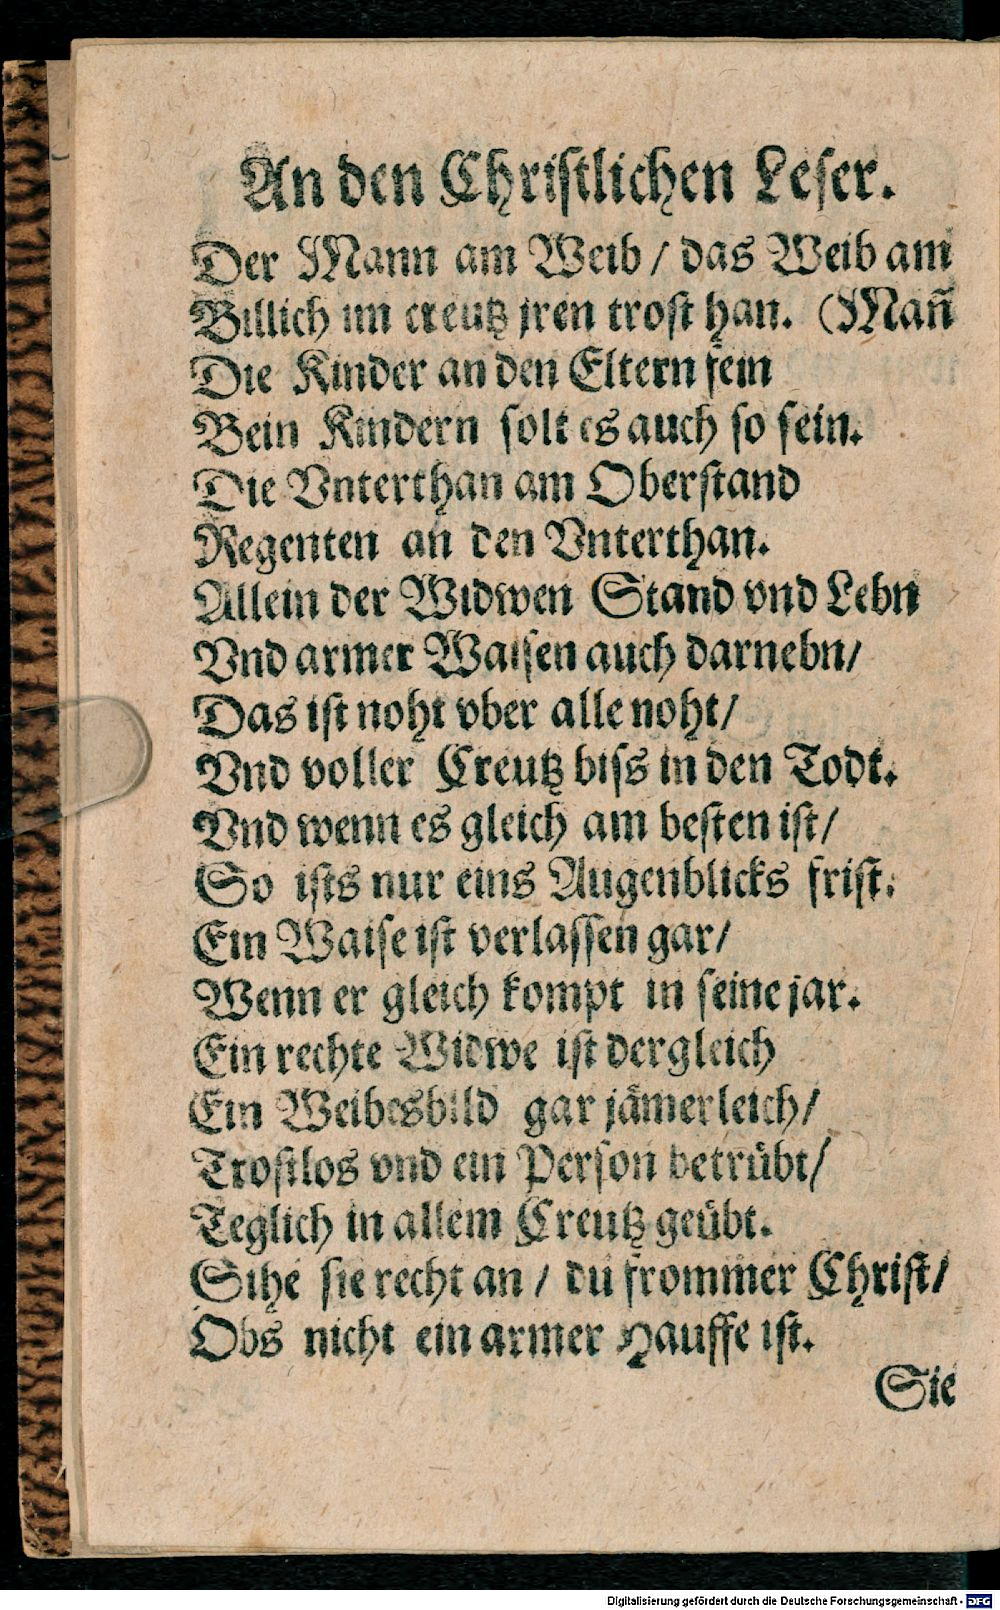 An den Christlichen Leser.
Der Mann am Weib / das Weib am
Billich im creutz jren trost han. (Mañ
Die Kinder an den Eltern fein
Bein Kindern solt es auch so sein.
Die Vnterthan am Oberstand
Regenten an den Vnterthan.
Allein der Widwen Stand vnd Lebn
Vnd armer Waisen auch darnebn/
Das ist noht vber alle noht/
Vnd voller Creutz biss in den Todt.
Vnd wenn es gleich am besten ist/
So ists nur eins Augenblicks frist.
Ein Waise ist verlassen gar/
Wenn er gleich kompt in seine jar.
Ein rechte Widwe ist dergleich
Ein Weibesbild gar jämerleich/
Trostlos vnd ein Person betrübt/
Teglich in allem Creutz geübt.
Sihe sie recht an / du frommer Christ/
Obs nicht ein armer Hauffe ist.
Sie
Digitalisierung gefördert durch die Deutsche Forschungsgemeinschaft - DFG